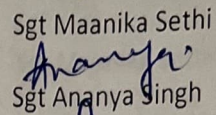 Sgt Maanika Sethi
Ananya
Sgt Ananya Singh